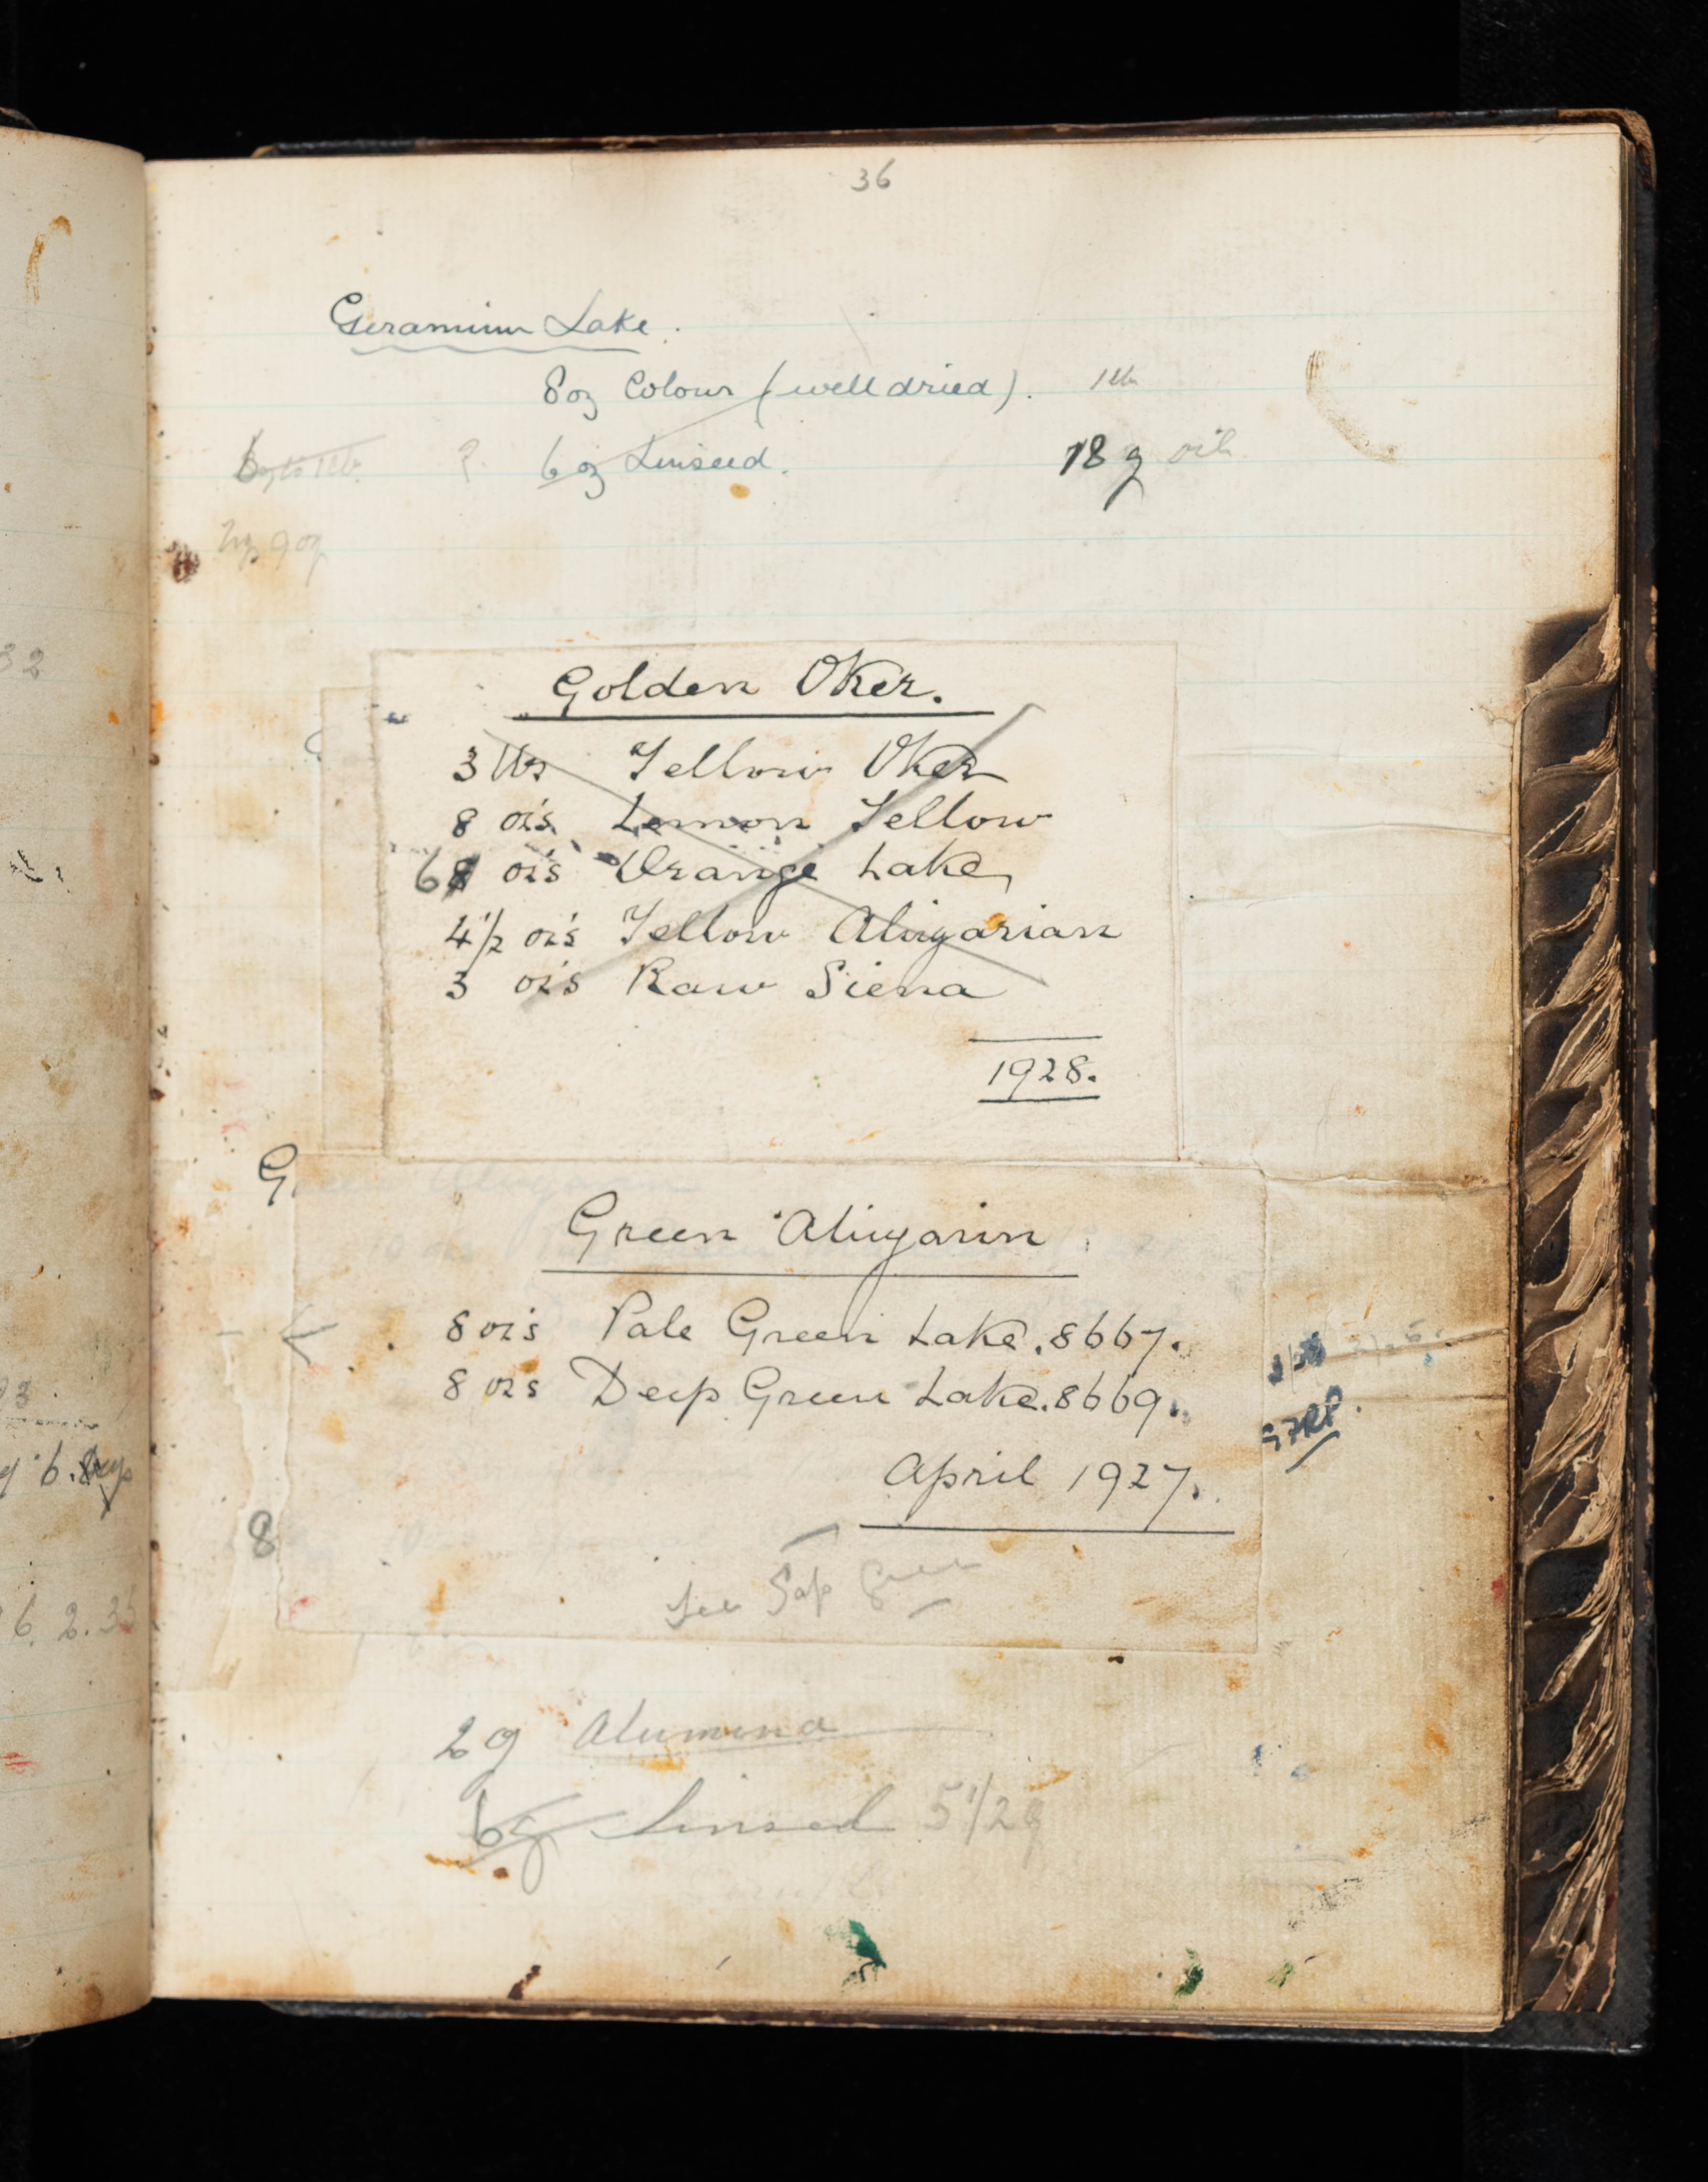 36
Geranium Lake.
8oz Colour (well dried). 1lb
? 6 oz Linseed. 18 oz oil
9 oz
Golden Oker.
3 lbs Yellow Oker
8 ozs Lemon Yellow
6 8 ozs Orange Lake
4 1/2 ozs Yellow Alizarian
3 ozs Raw Siena
1928.
G
Green Alizarin
8 ozs Pale Green Lake. 8667.
8 ozs Deep Green Lake. 8669.
April 1927.
8
See Sap Green
2 oz Alumina
6 oz Linseed 5 1/2 oz
32
6. 2. 35